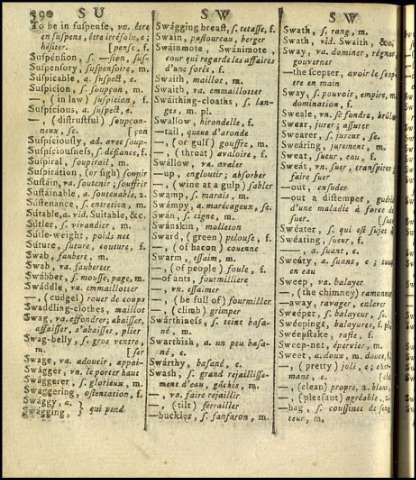 390 SU
S W
S W
To be in suspense, va. être
en suspens, être irrésolu, e;
hésiter. [pens, f.
Suspénsion, s. —sion, sus-
Suspensory, suspensoire, m.
Suspicable, a. suspect, e.
Suspícion, s. soupçon, m.
—, (in law) suspicion, f.
Suspícious, a. suspect, e.
—, (distrustful) soupcon-
neux, se. [çon
Suspíciously, ad. avec soup-
Suspíciousness, s. défiance, f.
Suspíral, soupirail, m.
Suspirátion, (or sigh) soupir
Sustáin, va. soutenir, souffrir
Sustáinable, a. soutenable, 2.
Sústenance, s. entretien, m.
Sútable, a. vid. Suitable, &c.
Sútler, s. vivandier, m.
Súttle-weight, poids net
Súture, suture, couture, f.
Swab, faubere, m.
Swab, va. fauberter
Swábber, s. mousse, page, m.
Swáddle, va. emmaillotter
—, (cudgel) rouer de coups
Swáddling-clothes, maillot
Swag, va. effondrer; abaisser,
affaisser, s'abaisser, plier
Swag-belly, s. gros ventre,
m. [ser
Swage, va. adoucir, appai-
Swágger, va. le porter haut
Swággerer, s. glorieux, m.
Swággering, ostentation, f.
Swággy, a.
Swágging, } qui pend
Swágging breast, s. tetasse, f.
Swain, pastoureau, berger
Swáinmote, Swánimote,
cour qui regarde les affaires
d'une forêt, f.
Swaith, maillot, m.
Swaith, va. emmaillotter
Swáithing-cloaths, s. lan-
ges, m. pl.
Swallow, hirondelle, f.
—tail, queue d'aronde
—, (or gulf) gouffre, m.
—, (throat) avaloire, f.
Swállow, va. avaler
—up, engloutir; absorber
—, (wine at a gulp) sabler
Swamp, s. marais, m.
Swámpy, a. marécageux, se.
Swan, s. cigne, m.
Swánskin, molleton
Sward, (green) pelouse, f.
—, (of bacon) couenne
Swarm, essaim, m.
—, (of people) foule, f.
—of ants, fourmilliere
—, vn. essaimer
—, (be full of) fourmiller
—, (climb) grimper
Swárthiness, s. teint basa-
né, m.
Swarthish, a. un peu basa-
né, e.
Swárthy, basané, e.
Swash, s. grand rejaillisse-
ment d'eau, gâchis, m.
—, va. faire rejaillir
—, (tilt) ferrailler
—buckler, s. fanfaron, m.
Swath, s. rang, m.
Swath, vid. Swaith, &c.
Sway, va. dominer, régner,
gouverner
—the scepter, avoir le scep-
tre en main
Sway, s. pouvoir, empire, m.
domination, f.
Sweale, va. se fondre,
Swear, jurer; assurer
Swearer, s. jureur, se.
Swéaring, jurement, m.
Sweat, sueur, eau, f.
Sweat, va. suer, transpirer,
faire suer
—out, exsuder
—out a distemper, guérir
d'une maladie à force de
suer. [suer
Swéater, s. qui est sujet à
Swéating, sueur, f.
—, a. suant, e.
Sweaty, a. suant, e; tout
en eau
Sweep, va. balayer
—, (the chimney) ramoner
—away, ravager, enlever
Sweéper, s. balayeur, se.
Sweépings, balayures, f. pl.
Sweépstake, rafle, f.
Sweep-net, épervier, m.
Sweet, a. doux, m. douce, f.
—, (pretty) joli, e; char-
mant, e.
—, (clean) propre,
—, (pleasant) agréable, 2.
—bag, s. coussinet de sen-
teur, m.